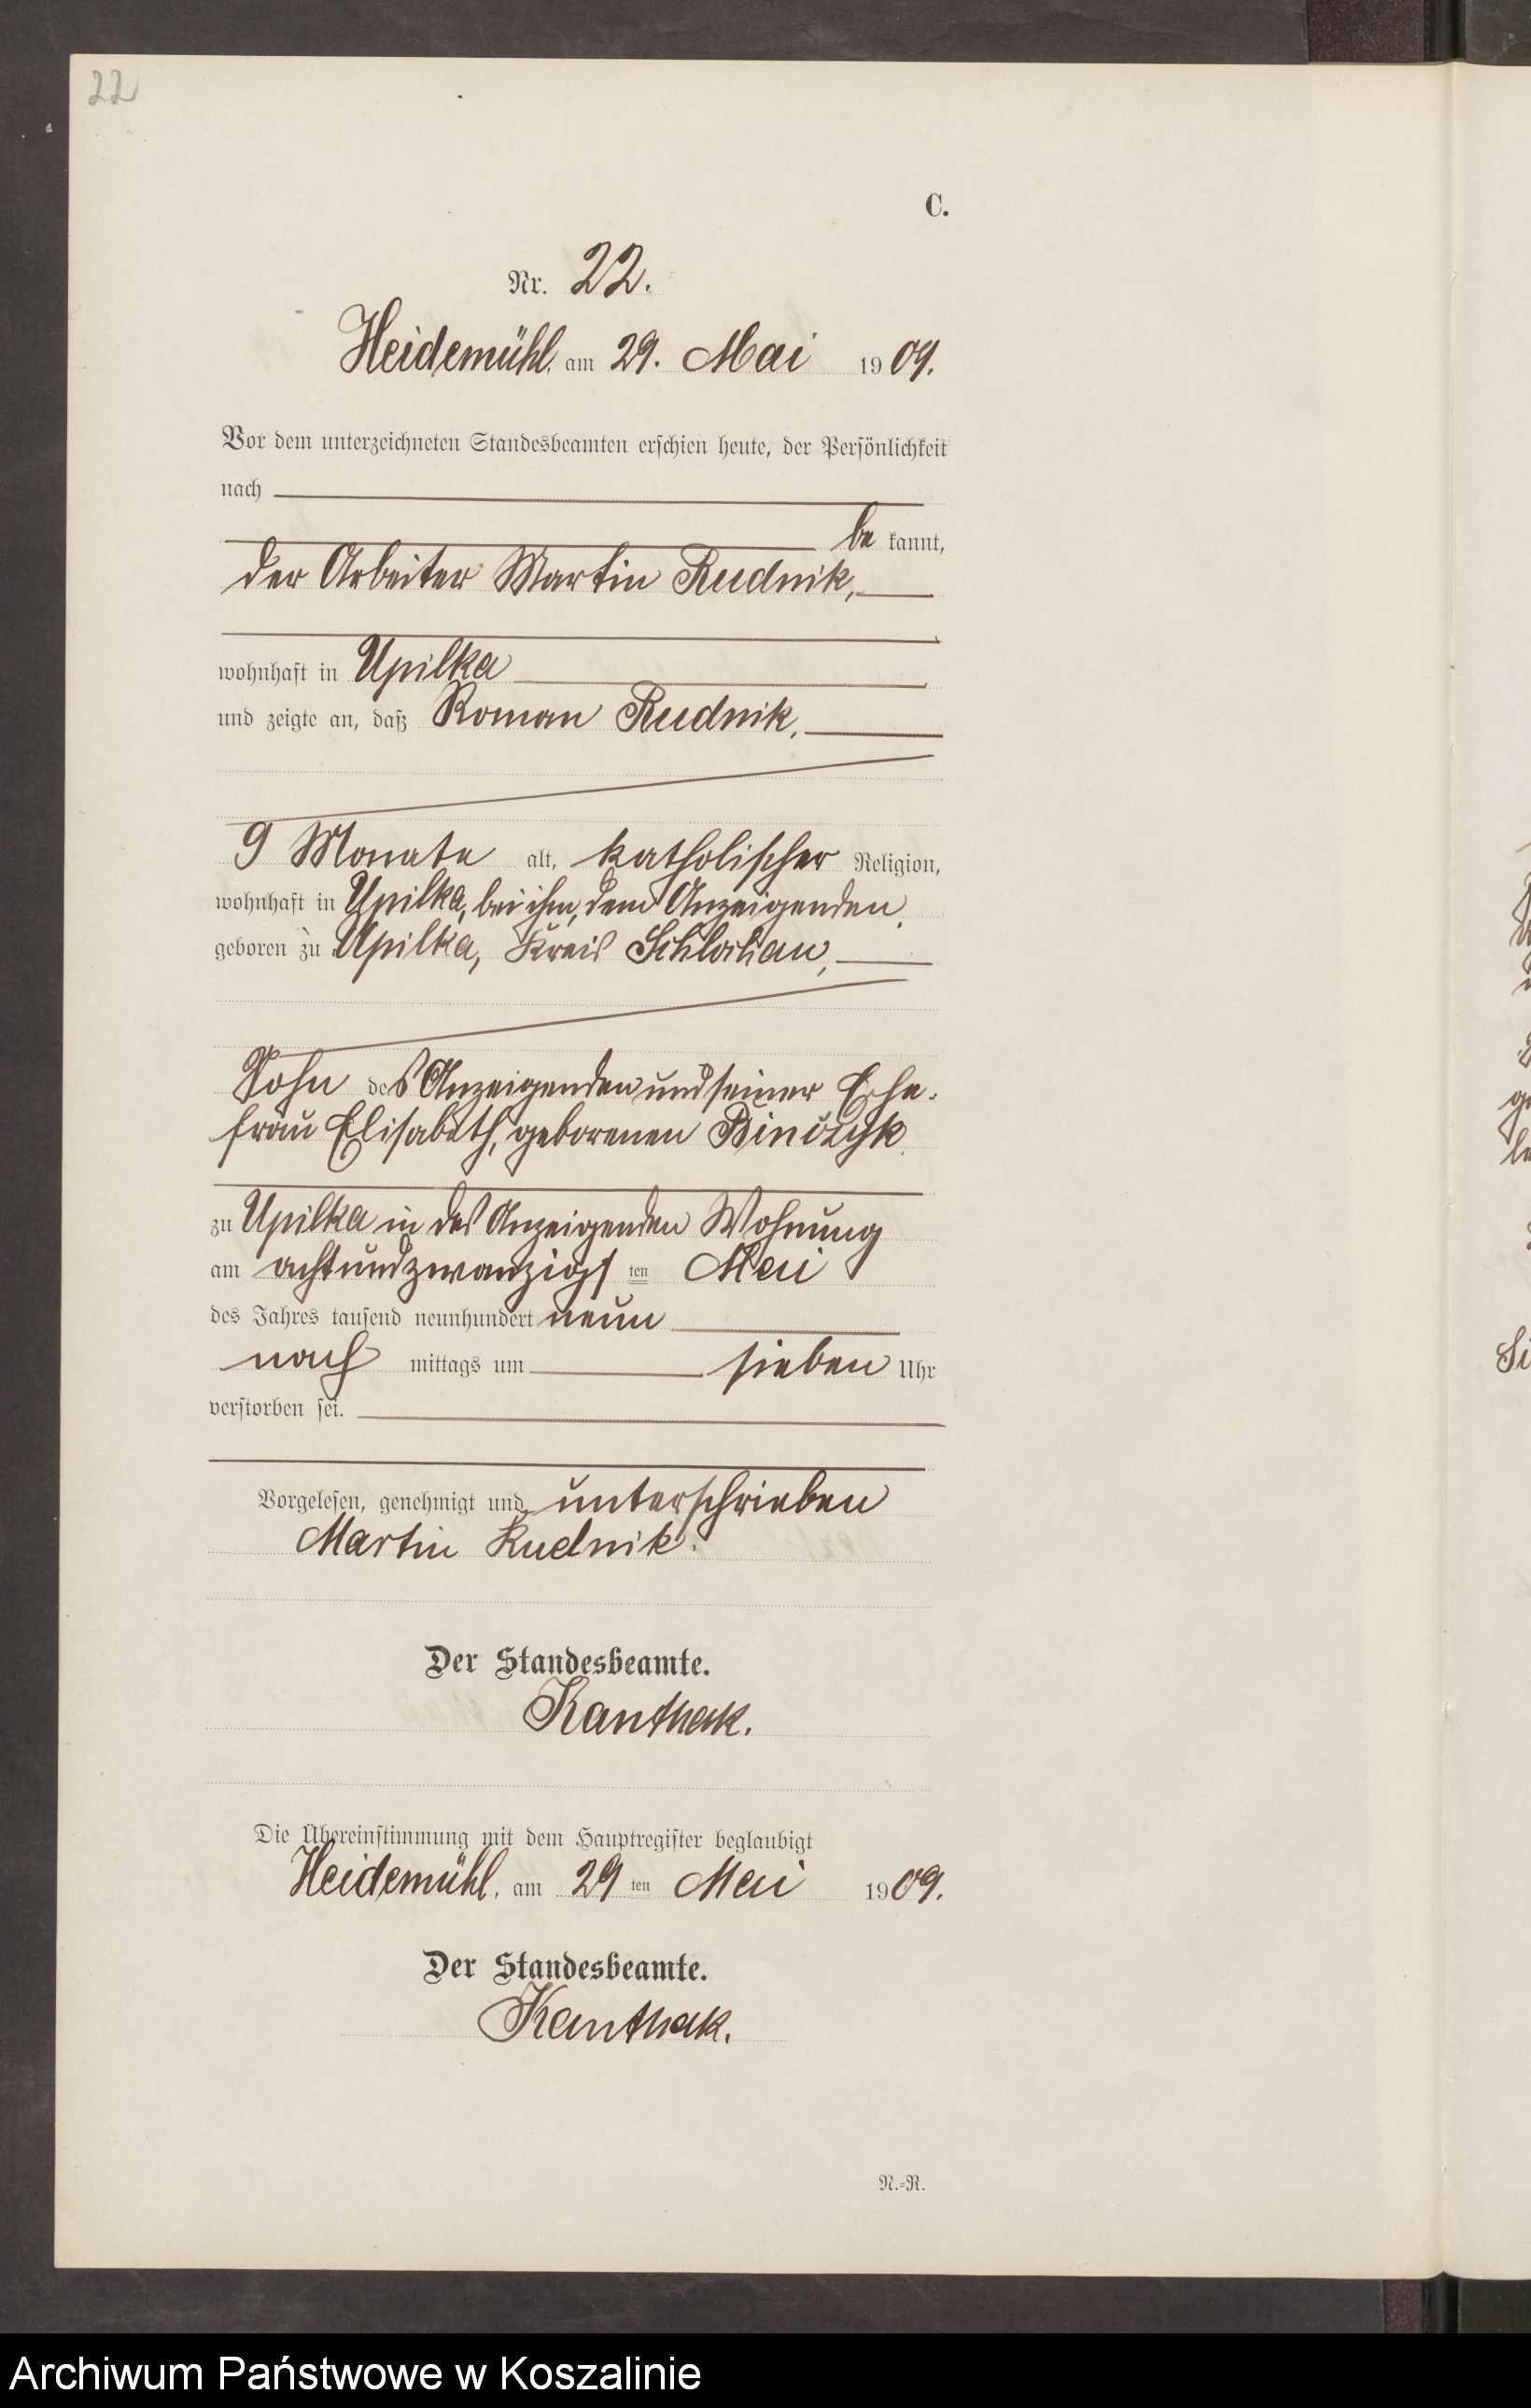 22
C.
Nr. 22.
Heidemühl, am 29. Mai 1909.
Vor dem unterzeichneten Standesbeamten erschien heute, der Persönlichkeit
nach
be kannt,
der Arbeiter Martin Rudnik,
wohnhaft in Upilka
und zeigte an, daß Roman Rudnik,
9 Monate alt, katholischer Religion,
wohnhaft in Upilka, bei ihm, dem Anzeigenden,
geboren zu Upilka, Kreis Schlochau,
Sohn des Anzeigenden und seiner Ehe-
frau Elisabeth, geborenen Binczyk
zu Upilka in des Anzeigenden Wohnung
am achtundzwanzigsten Mai
des Jahres tausend neunhundert neun
nach mittags um sieben Uhr
verstorben sei.
Vorgelesen, genehmigt und unterschrieben
Martin Rudnik.
Der Standesbeamte.
Kanthak.
Die Übereinstimmung mit dem Hauptregister beglaubigt
Heidemühl, am 29ten Mai 1909.
Der Standesbeamte.
Kanthak.
N.=R.
Archiwum Państwowe w Koszalinie